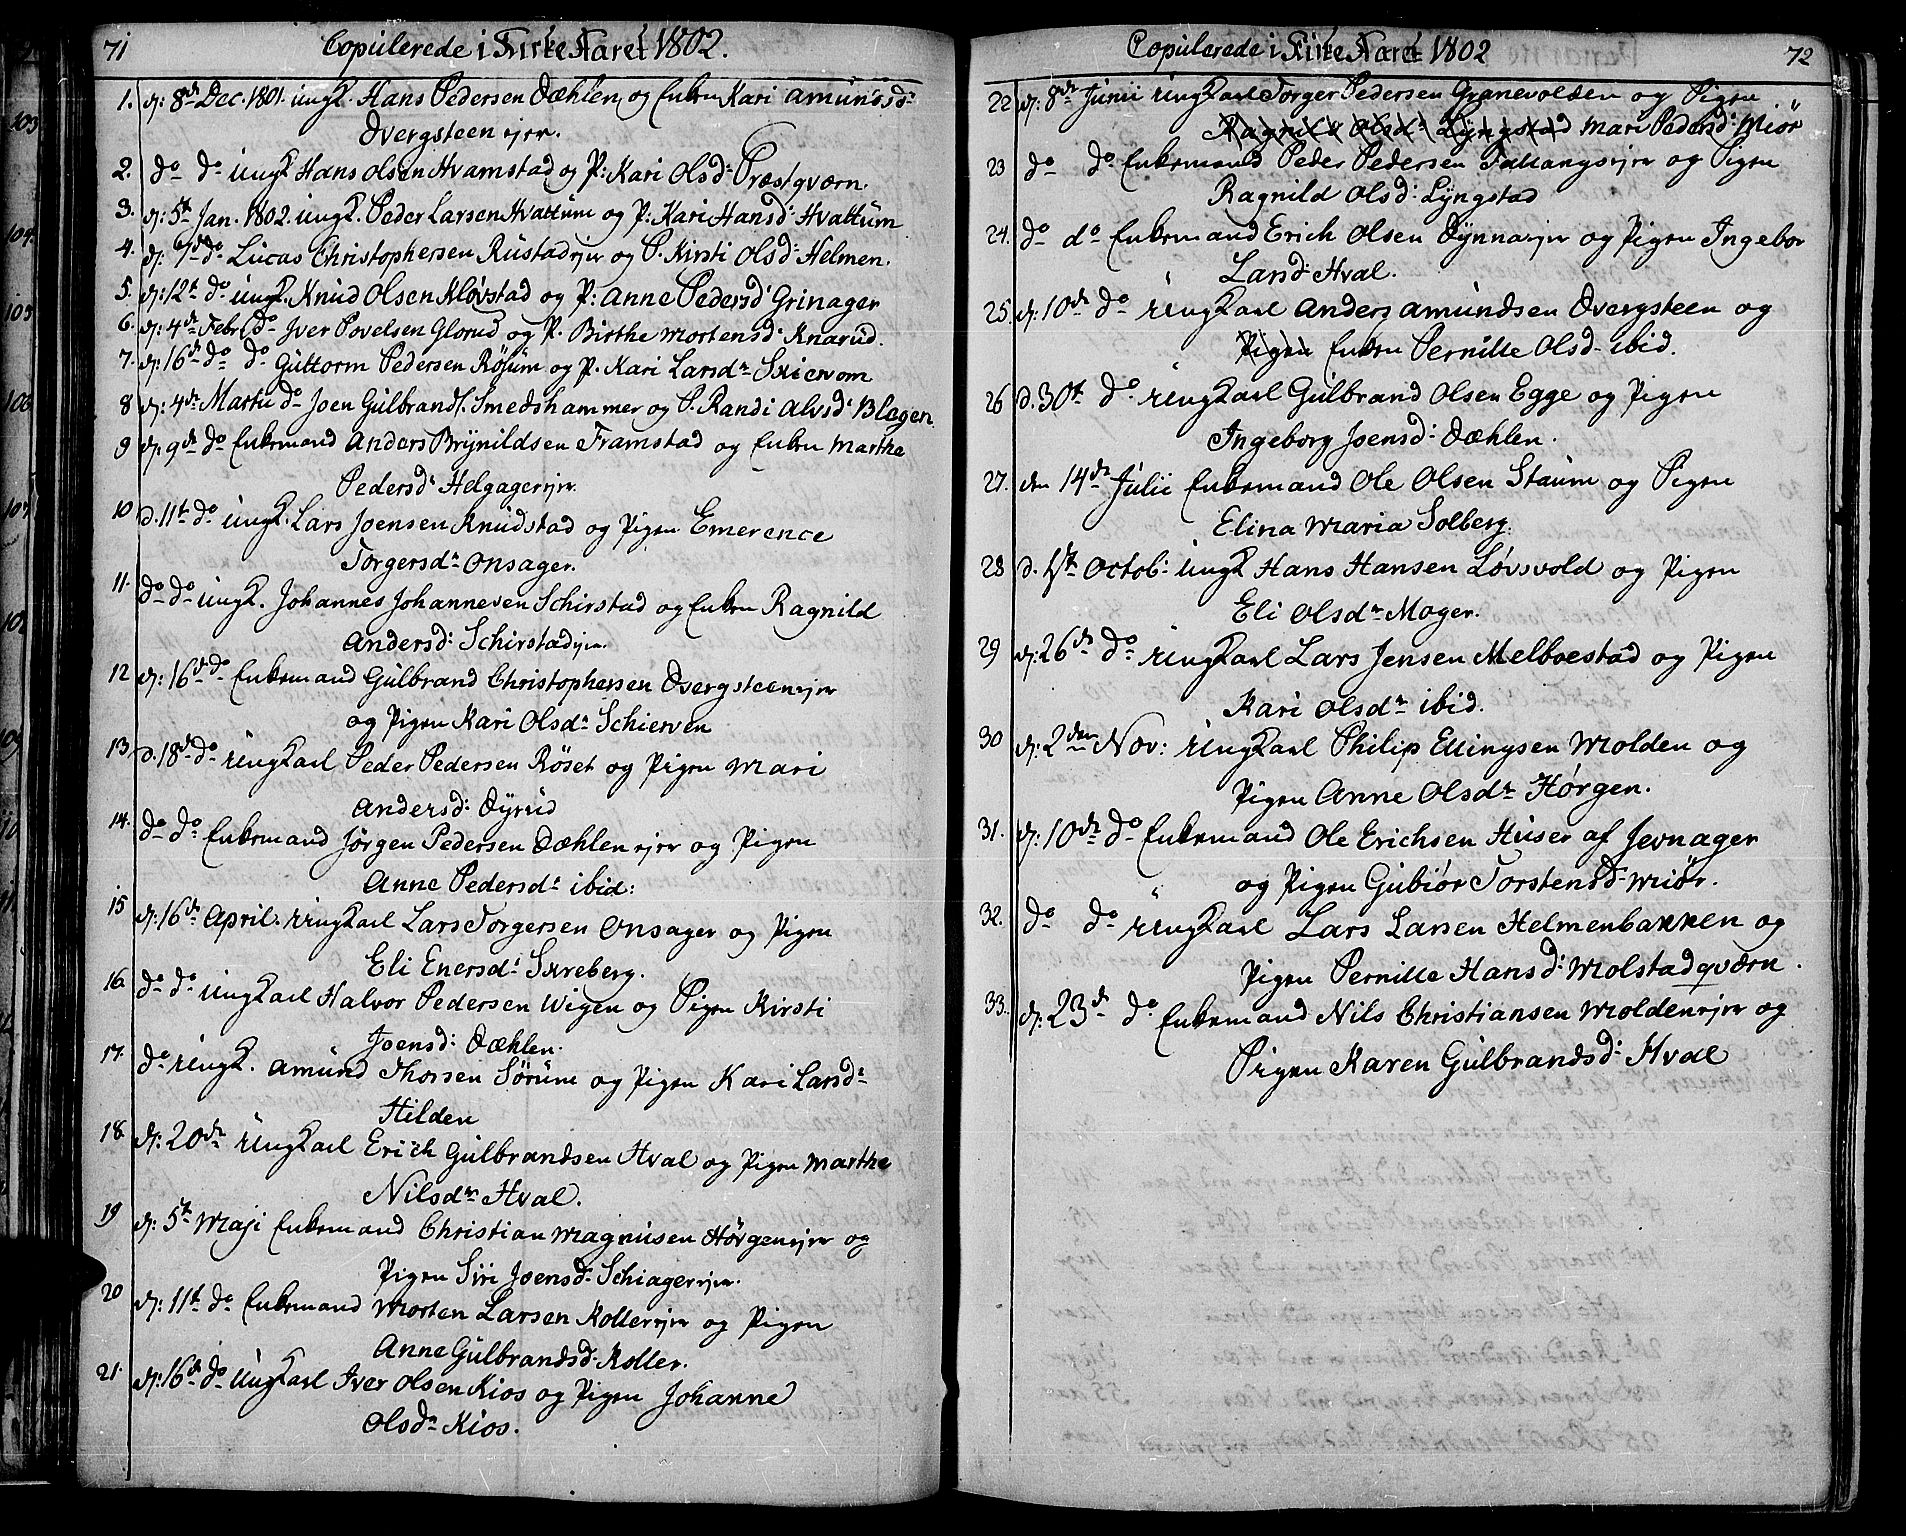 71
Copulerede i Kirke Aaret 1802.
1. d: 8de Dec. 1801. ungk. Hans Pedersen Dæhlen og Enken Kari Amundsdr
Dvergsteen ejer.
2. do do ungk Hans Olsen Hvamstad og P: Kari Olsdr Præstqværn.
3. d: 5te Jan. 1802. ungk. Peder Larsen Hvattum og P: Kari Hansdr Hvattum
4. d: 7de do Lucas Christophersen Rustadejer og P. Kirsti Olsdr Helmen.
5. d: 12te do ungk. Knud Olsen Kløvstad og P: Anne Pedersdr Grinager
6. d: 4de Febr. do Iver Povelsen Glorud og P. Birthe Mortensdr Knarud.
7. d: 16de do do Guttorm Pedersen Røsum og P. Kari Larsdr Skiervom
8 d: 4de Martii do Joen Gulbrands. Smedshammer og P. Randi Alvsdr Blegen.
9 d: 9de do Enkemand Anders Brynildsen Framstad og Enken Marthe
Pedersdr Helgagerejer.
10 d. 11te do ungk. Lars Joensen Knudstad og Pigen Emerence
Torgersdr Onsager.
11. do do ungk. Johannes Johannesen Schirstad og Enken Ragnild
Andersdr Schirstadejer.
12 d: 16de do Enkemand Gulbrand Christophersen Dvergsteenejer
og Pigen Kari Olsdr Schierven
13. d. 18de do ungkarl Peder Pedersen Røset og Pigen Mari
Andersdr Dyrud
14. do do Enkemand Jörgen Pedersen Dæhlen ejer og Pigen
Anne Pedersdr ibid:
15 d: 16de April. ungkarl Lars Torgersen Onsager og Pigen
Eli Enersdr Skreberg.
16. do do ungkarl Halvor Pedersen Wigen og Pigen Kirsti
Joensdr Dæhlen.
17. do ungk. Amund Thorsen Sørum og Pigen Kari Larsdr
Hilden
18. d: 20de ungkarl Erich Gulbrandsen Hval og Pigen Marthe
Nilsdr Hval.
19 d: 5te Maji Enkemand Christian Magnusen Hørgenejer og
Pigen Siri Joensdr Schiagerejer.
20 d: 11te do Enkemand Morten Larsen Kollerejer og Pigen
Anne Gulbrandsdr Koller.
21. d: 16de do ungkarl Iver Olsen Kios og Pigen Johanne
Olsdr Kios.
Copulerede i Kirke Aaret 1802
72
22 d: 8de Junii ungkarl Torger Pedersen Granevolden og Pigen
Ragnild Olsdr Lyngstad Mari Pedersdr Miör
23 do do Enkemand Peder Pedersen Fallangsejer og Pigen
Ragnild Olsdr Lyngstad
24. do do Enkemand Erich Olsen Dynnaejer og Pigen Ingebor
Larsdr Hval.
25. d: 10de do ungkarl Anders Amundsen Dvergsteen og
Pigen Enken Pernille Olsd- ibid.
26 d. 30te do ungkarl Gulbrand Olsen Egge og Pigen
Ingeborg Joensdr Dæhlen.
27. den 14de Julii Enkemand Ole Olsen Staum og Pigen
Elina Maria Solberg.
28 d. 1te Octob: ungk Hans Hansen Løvsvold og Pigen
Eli Olsdr Moger.
29 d: 26de do ungkarl Lars Jensen Melboestad og Pigen
Kari Olsdr ibid.
30 d: 2den Nov: ungkarl Philip Ellingsen Molden og
Pigen Anne Olsdr Hørgen.
31. d: 10de do Enkemand Ole Erichsen Huser af Jevnager
og Pigen Gubiør Torstensdr Miör.
32. do do ungkarl Lars Larsen Helmenbakken og
Pigen Pernille Hansdr Molstadqværn.
33. d: 23de do Enkemand Nils Christiansen Moldenejer og
Pigen Karen Gulbrandsdr Hval